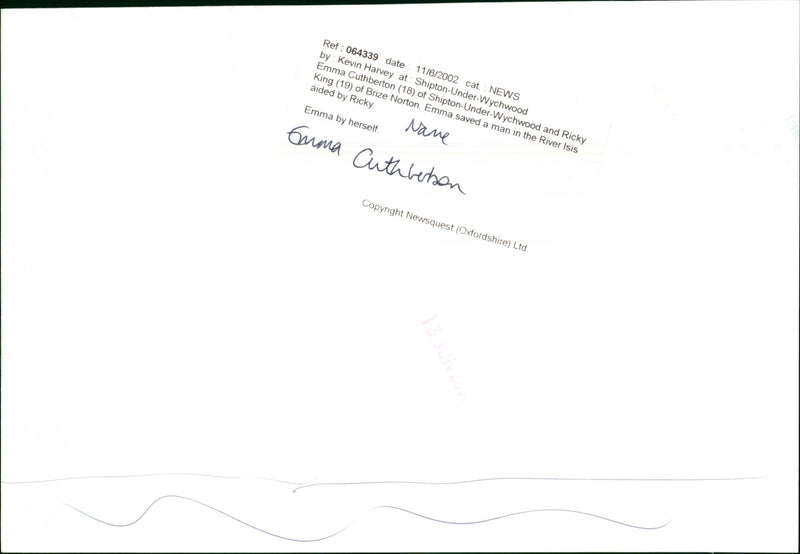 Ref : 064339 date : 11/6/2002 cat. : NEWS
by : Kevin Harvey at : Shipton-Under-Wychwood
Emma Cuthberton (18) of Shipton-Under-Wychwood and Ricky
King (19) of Brize Norton. Emma saved a man in the River Isis
aided by Ricky.
Emma by herself. Name
Emma Cuthbertson
Copyright Newsquest (Oxfordshire) Ltd.
13 JUN